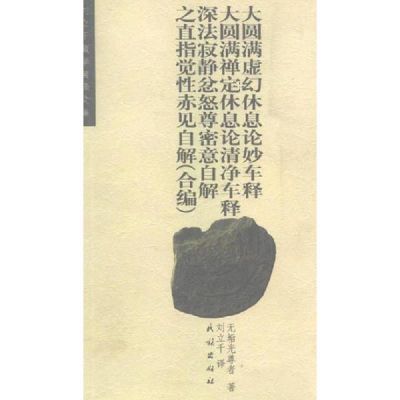 大圆满虚幻休息论妙车释
大圆满禅定休息论清净车释
深法寂静忿怒尊密意自解
之直指觉性赤见自解(合编)
无垢光尊者 著
刘立千 译
民族出版社